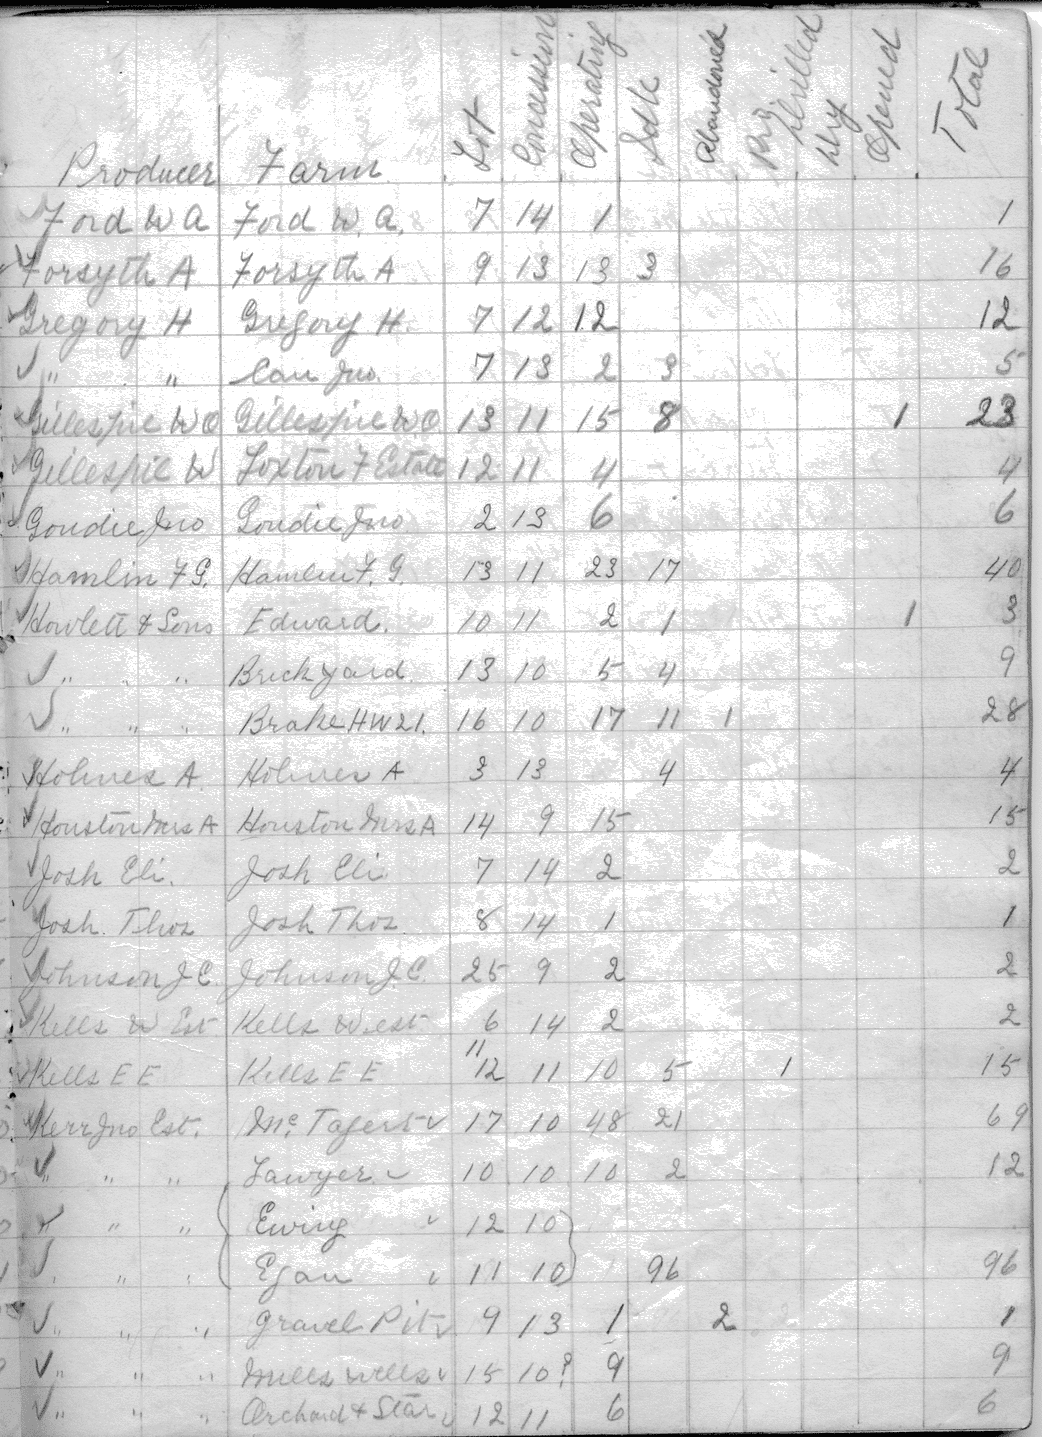 Producer Farm Lot Concession Operating Idle Abandoned Rig Drilled Dry Opened Total
Ford W A Ford W. A. 7 14 1 1
Forsyth A Forsyth A 9 13 13 3 16
Gregory H Gregory H. 7 12 12 12
" " Jno. 7 13 2 3 5
Gillespie W O Gillespie W.O 13 11 15 8 1 23
Gillespie W Loxton F Estate 12 11 4 4
Goudie Jno Goudie Jno 2 13 6 6
Hamlin F G. Hamlin F. G. 13 11 23 17 40
Howlett & Sons Edward. 10 11 2 1 1 3
" " " Brickyard. 13 10 5 4 9
" " " Brake HW21. 16 10 17 11 1 28
Holmes A. Holmes A 3 13 4 4
Houston Mrs A Houston Mrs A 14 9 15 15
Josh Eli. Josh Eli 7 14 2 2
Josh. Thos Josh Thos. 8 14 1 1
Johnson J C. Johnson J. C. 25 9 2 2
Kells W Est Kells W. est 6 14 2 2
Kells E E Kells E E 11 12 11 10 5 1 15
Kerr Jno Est. Mc Tagert 17 10 48 21 69
" " " Lawyer 10 10 10 2 12
" " " Ewing 12 10
" " Egan 11 10 96 96
" " " Gravel Pit 9 13 1 2 1
" " " Mills wells 15 10? 9 9
" " " Orchard & Star 12 11 6 6